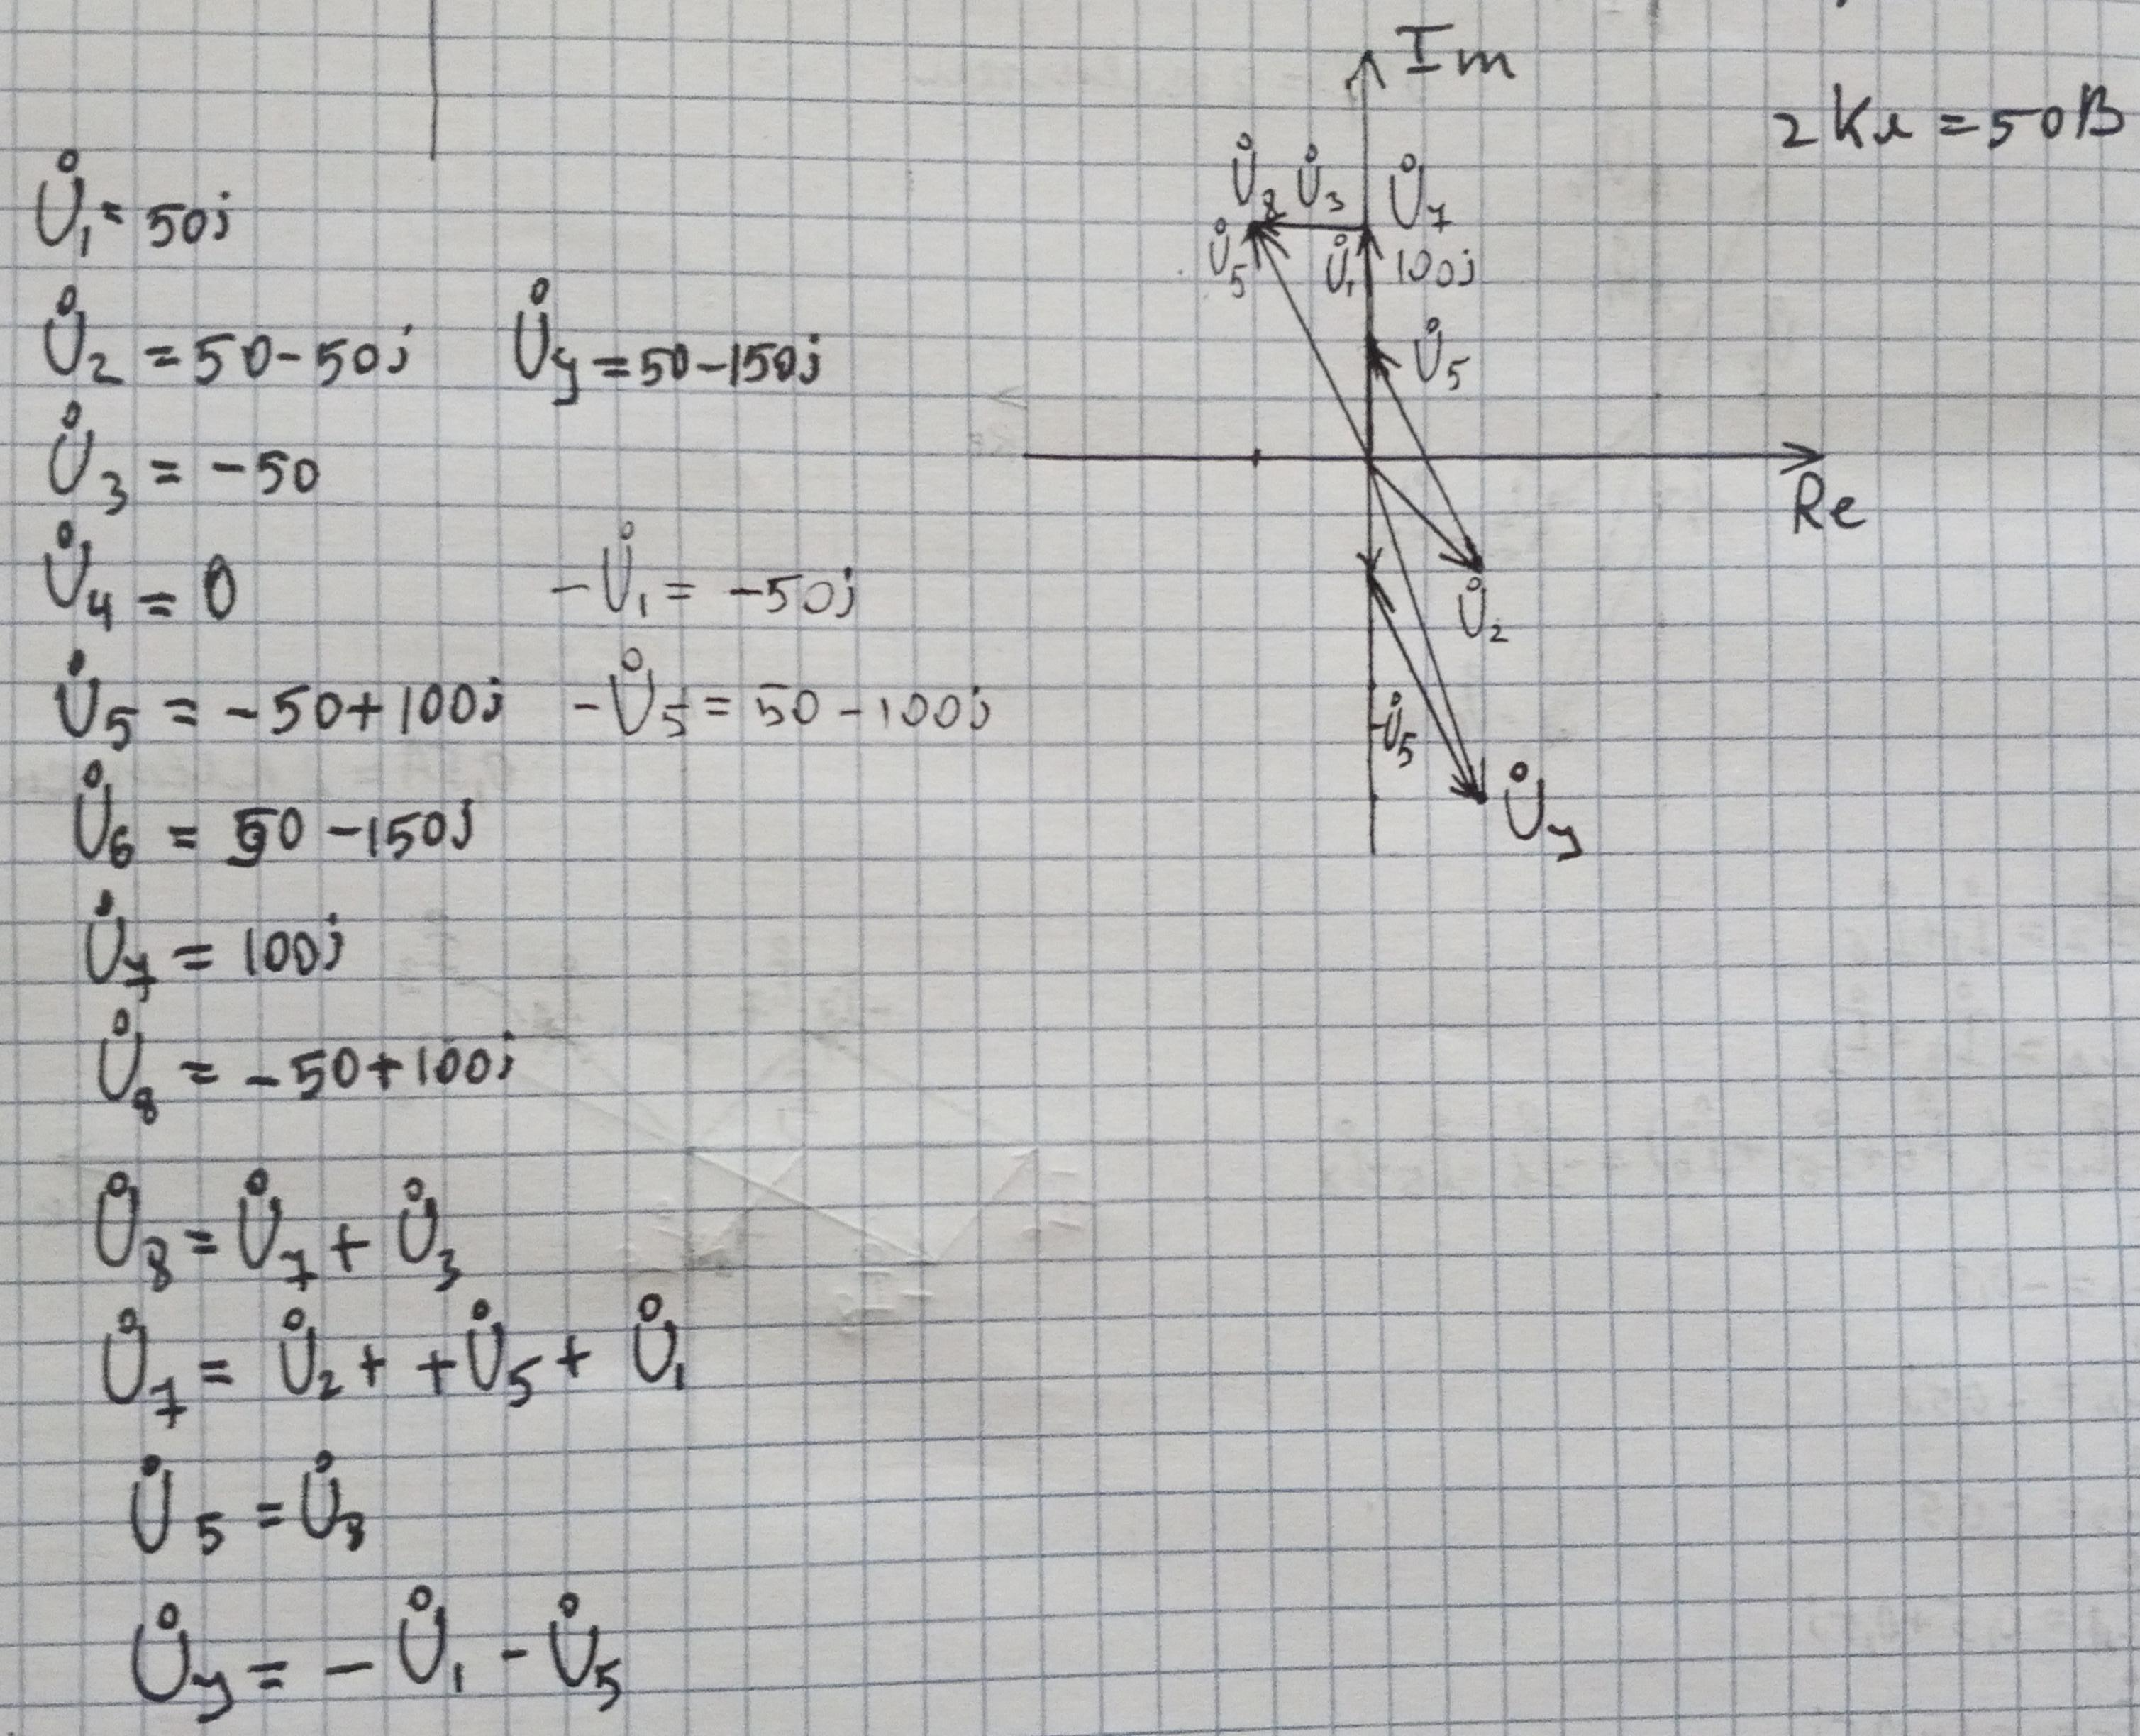 U̇₁ = 50j
U̇₂ = 50-50j U̇y = 50-150j
U̇₃ = -50
U̇₄ = 0 -U̇₁ = -50j
U̇₅ = -50+100j -U̇₅ = 50-100j
U̇₆ = 50-150j
U̇₇ = 100j
U̇₈ = -50+100j
U̇₈ = U̇₇ + U̇₃
U̇₇ = U̇₂ + +U̇₅ + U̇₁
U̇₅ = U̇₈
U̇y = -U̇₁ - U̇₅
Im
2Кл = 50В
U̇₈ U̇₃ U̇₇
U̇₅ U̇₁ 100j
U̇₅
Re
U̇₂
-U̇₅
U̇y